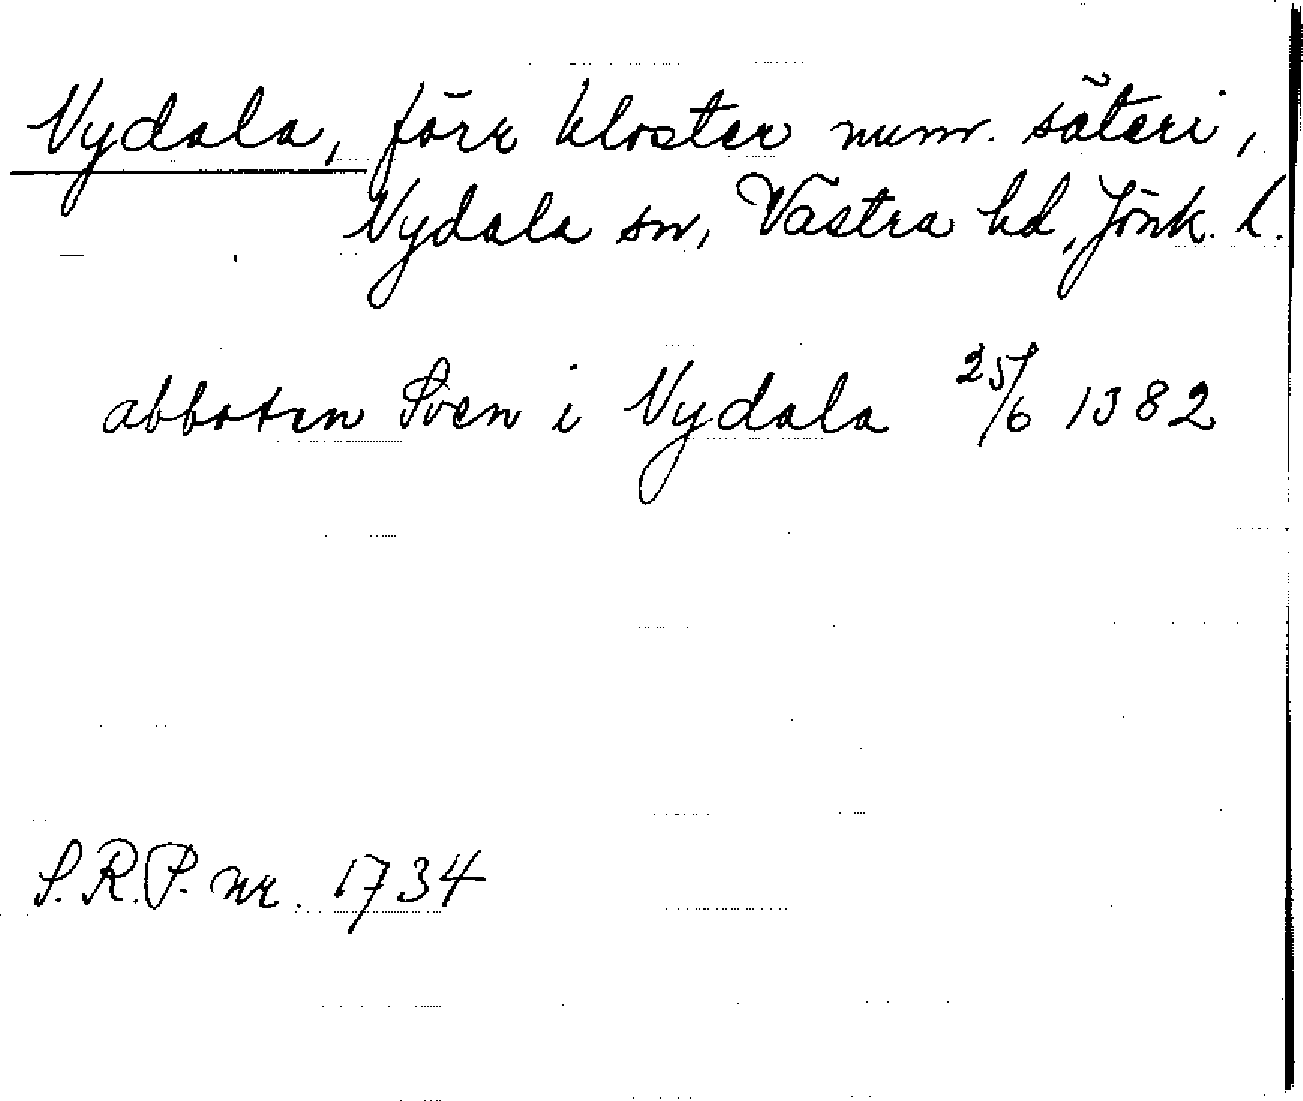 Nydala, förr kloster numr. säteri,
Nydala sn, Västra hd, Jönk. l.
abboten Sven i Nydala 25/6 1382
S.R.P. nr. 1734